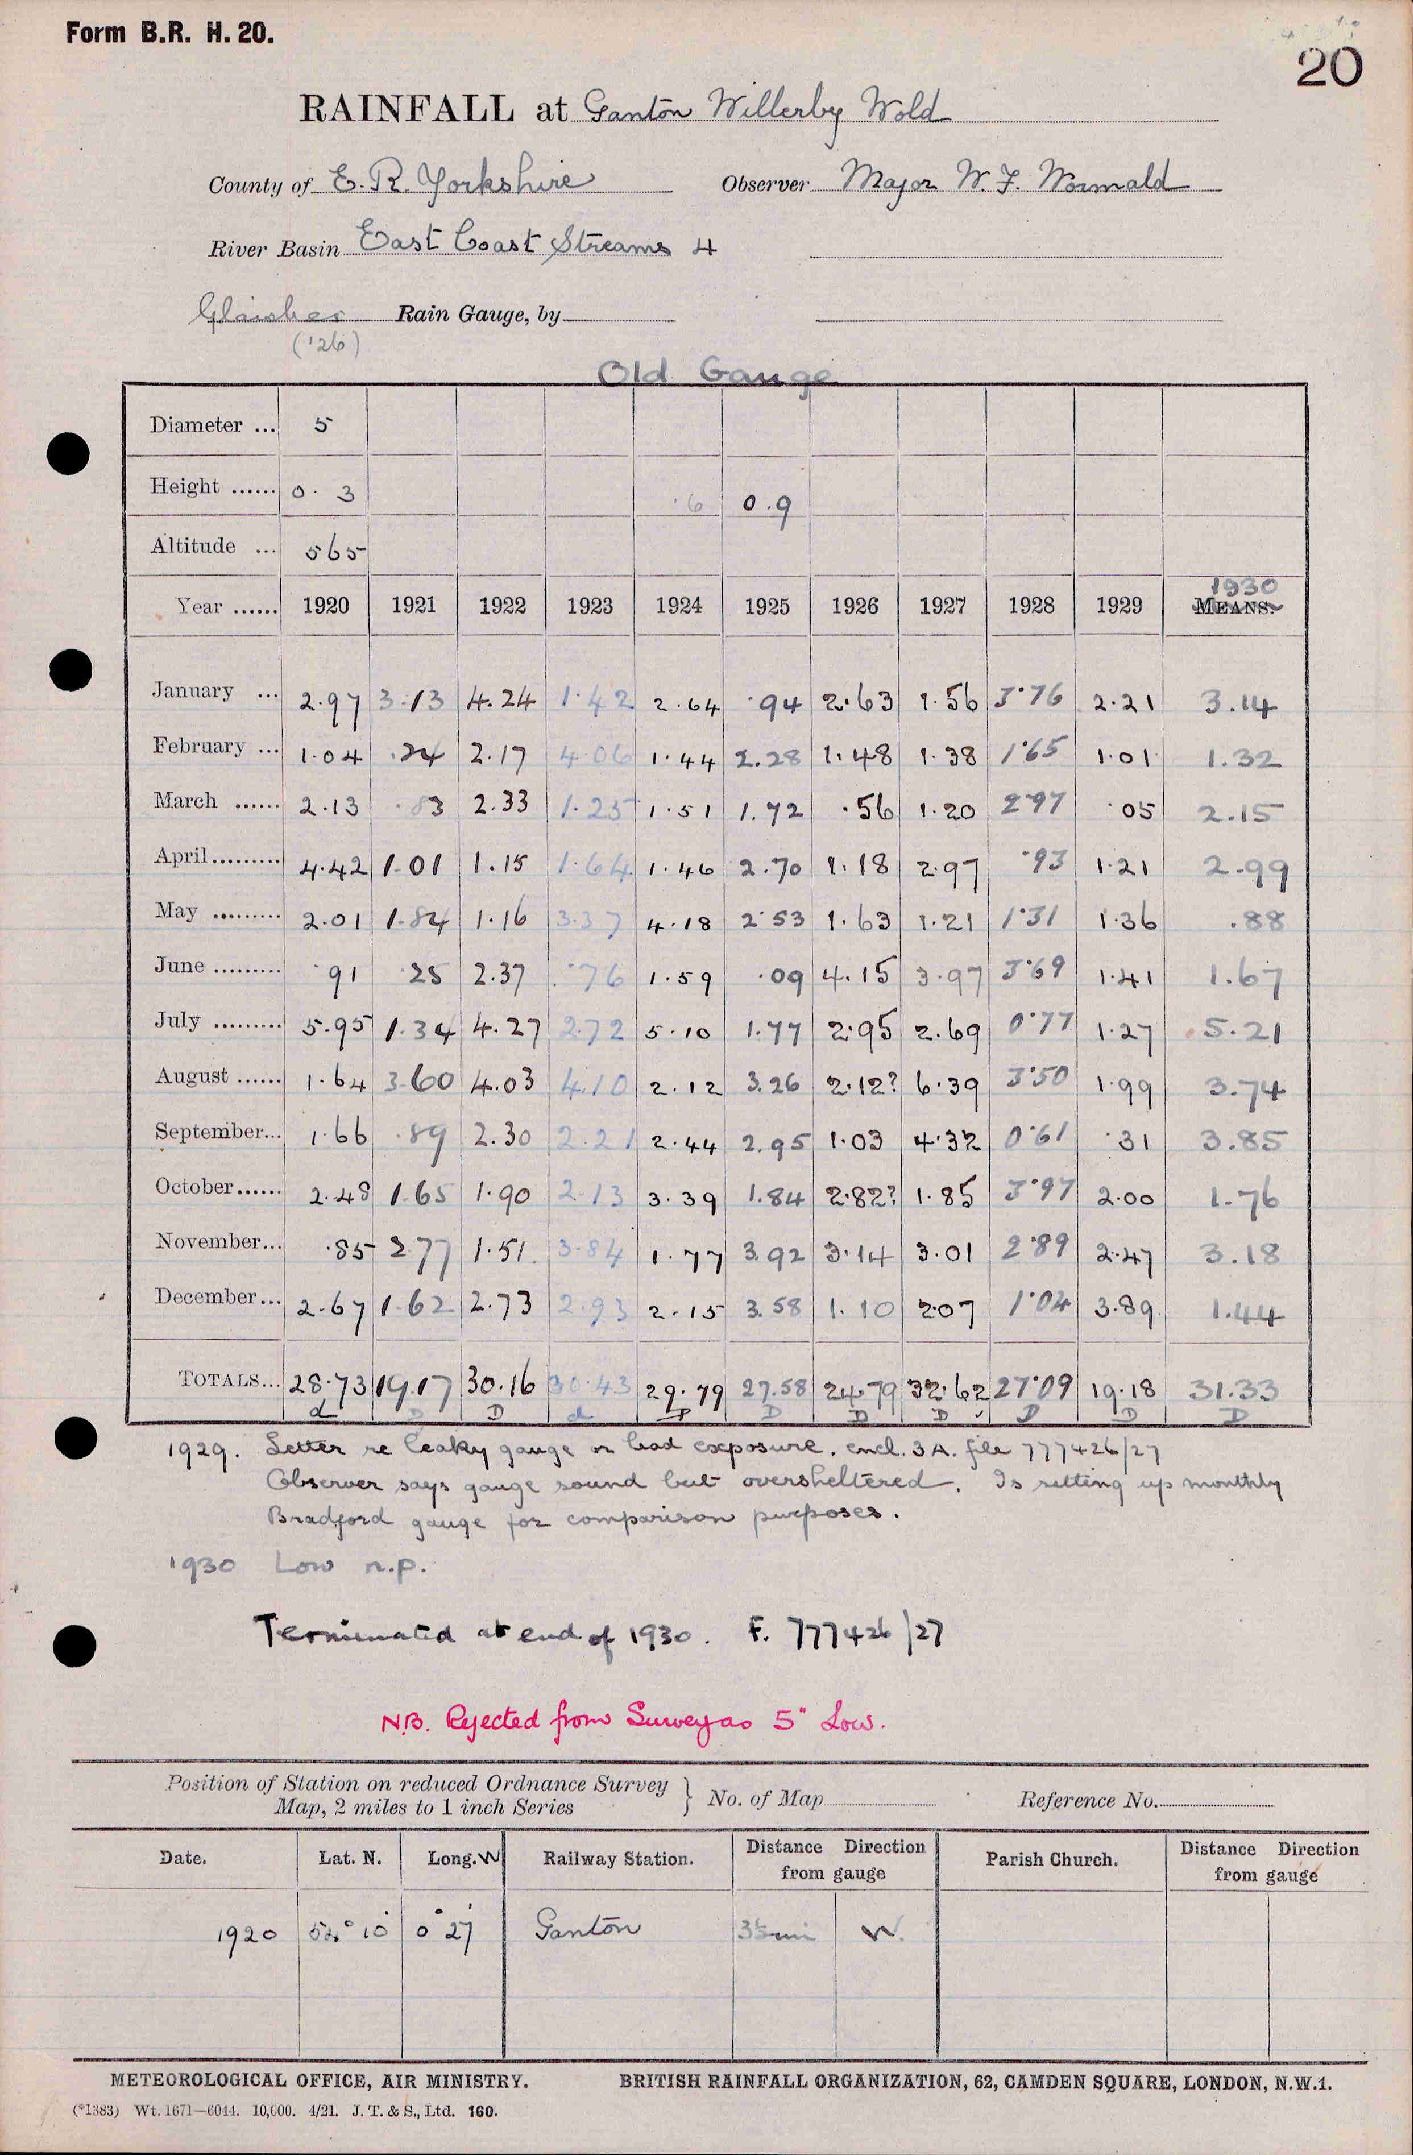 Form B.R. H. 20.
20
RAINFALL at Ganton Willerby Wold
County of E. R. Yorkshire Observer Major W. F. Wormald
River Basin East Coast Streams 4
Glaisher Rain Gauge, by
('26)
Old Gauge
Diameter ... 5
Height ...... 0. 3 .6 0.9
Altitude ... 565
1930
Year ...... 1920 1921 1922 1923 1924 1925 1926 1927 1928 1929 MEANS.
January ... 2.97 3.13 4.24 1.42 2.64 .94 2.63 1.56 3.76 2.21 3.14
February ... 1.04 .24 2.17 4.06 1.44 2.28 1.48 1.38 1.65 1.01 1.32
March ...... 2.13 .83 2.33 1.25 1.51 1.72 .56 1.20 2.97 .05 2.15
April......... 4.42 1.01 1.15 1.64 1.46 2.70 1.18 2.97 .93 1.21 2.99
May ......... 2.01 1.84 1.16 3.37 4.18 2.53 1.63 1.21 1.31 1.36 .88
June ......... .91 .25 2.37 .76 1.59 .09 4.15 3.97 3.69 1.41 1.67
July ......... 5.95 1.34 4.27 2.72 5.10 1.77 2.95 2.69 0.77 1.27 5.21
August ...... 1.64 3.60 4.03 4.10 2.12 3.26 2.12? 6.39 3.50 1.99 3.74
September... 1.66 .89 2.30 2.21 2.44 2.95 1.03 4.32 0.61 .31 3.85
October...... 2.48 1.65 1.90 2.13 3.39 1.84 2.82? 1.85 3.97 2.00 1.76
November... .85 2.77 1.51 3.84 1.77 3.92 3.14 3.01 2.89 2.47 3.18
December... 2.67 1.62 2.73 2.93 2.15 3.58 1.10 2.07 1.04 3.89 1.44
TOTALS... 28.73 19.17 30.16 30.43 29.79 27.58 24.79 32.62 27.09 19.18 31.33
d D D d D D D D D D D
1929. Letter re leaky gauge or bad exposure. encl. 3A. file 777426/27
Observer says gauge sound but oversheltered. Is setting up monthly
Bradford gauge for comparison purposes.
1930 Low n.p.
Terminated at end of 1930. F. 777426/27
N.B. Rejected from Survey as 5" Low.
Position of Station on reduced Ordnance Survey
Map, 2 miles to 1 inch Series } No. of Map Reference No.
Date. Lat. N. Long. W Railway Station. Distance Direction from gauge Parish Church. Distance Direction from gauge
1920 54° 10' 0° 27' Ganton 3½ mi W.
METEOROLOGICAL OFFICE, AIR MINISTRY. BRITISH RAINFALL ORGANIZATION, 62, CAMDEN SQUARE, LONDON, N.W.1.
(*1383) Wt. 1671—6044. 10,000. 4/21. J. T. & S., Ltd. 160.